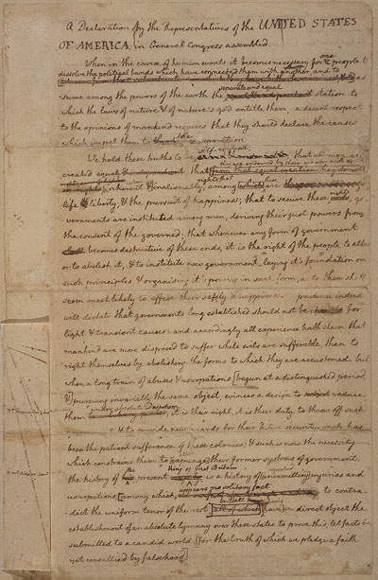 A Declaration by the Representatives of the UNITED STATES
OF AMERICA, in General Congress assembled.
When in the course of human events it becomes necessary for one people to
dissolve the political bands which have connected them with another, and to
assume among the powers of the earth the separate and equal station to
which the laws of nature & of nature's god entitle them, a decent respect
to the opinions of mankind requires that they should declare the causes
which impel them to the separation.
We hold these truths to be self-evident, that all men are
created equal
rights inherent & inalienable, among these are
life, & liberty, & the pursuit of happiness; that to secure these rights, go-
vernments are instituted among men, deriving their just powers from
the consent of the governed; that whenever any form of government
becomes destructive of these ends, it is the right of the people to alter
or to abolish it, & to institute new government, laying it's foundation on
such principles & organising it's powers in such form, as to them shall
seem most likely to effect their safety & happiness. prudence indeed
will dictate that governments long established should not be changed for
light & transient causes: and accordingly all experience hath shewn that
mankind are more disposed to suffer while evils are sufferable, than to
right themselves by abolishing the forms to which they are accustomed. but
when a long train of abuses & usurpations [begun at a distinguished period,
& pursuing invariably the same object, evinces a design to reduce
them under absolute Despotism it is their right, it is their duty, to throw off such
& to provide new guards for their future security. such has
been the patient sufferance of these colonies; & such is now the necessity
which constrains them to [expunge] their former systems of government.
the history of the present King of Great Britain is a history of injuries and
usurpations, [among which appears no solitary fact to contra-
dict the uniform tenor of the rest [all of which] have in direct object the
establishment of an absolute tyranny over these states. to prove this, let facts be
submitted to a candid world, [for the truth of which we pledge a faith
yet unsullied by falsehood]